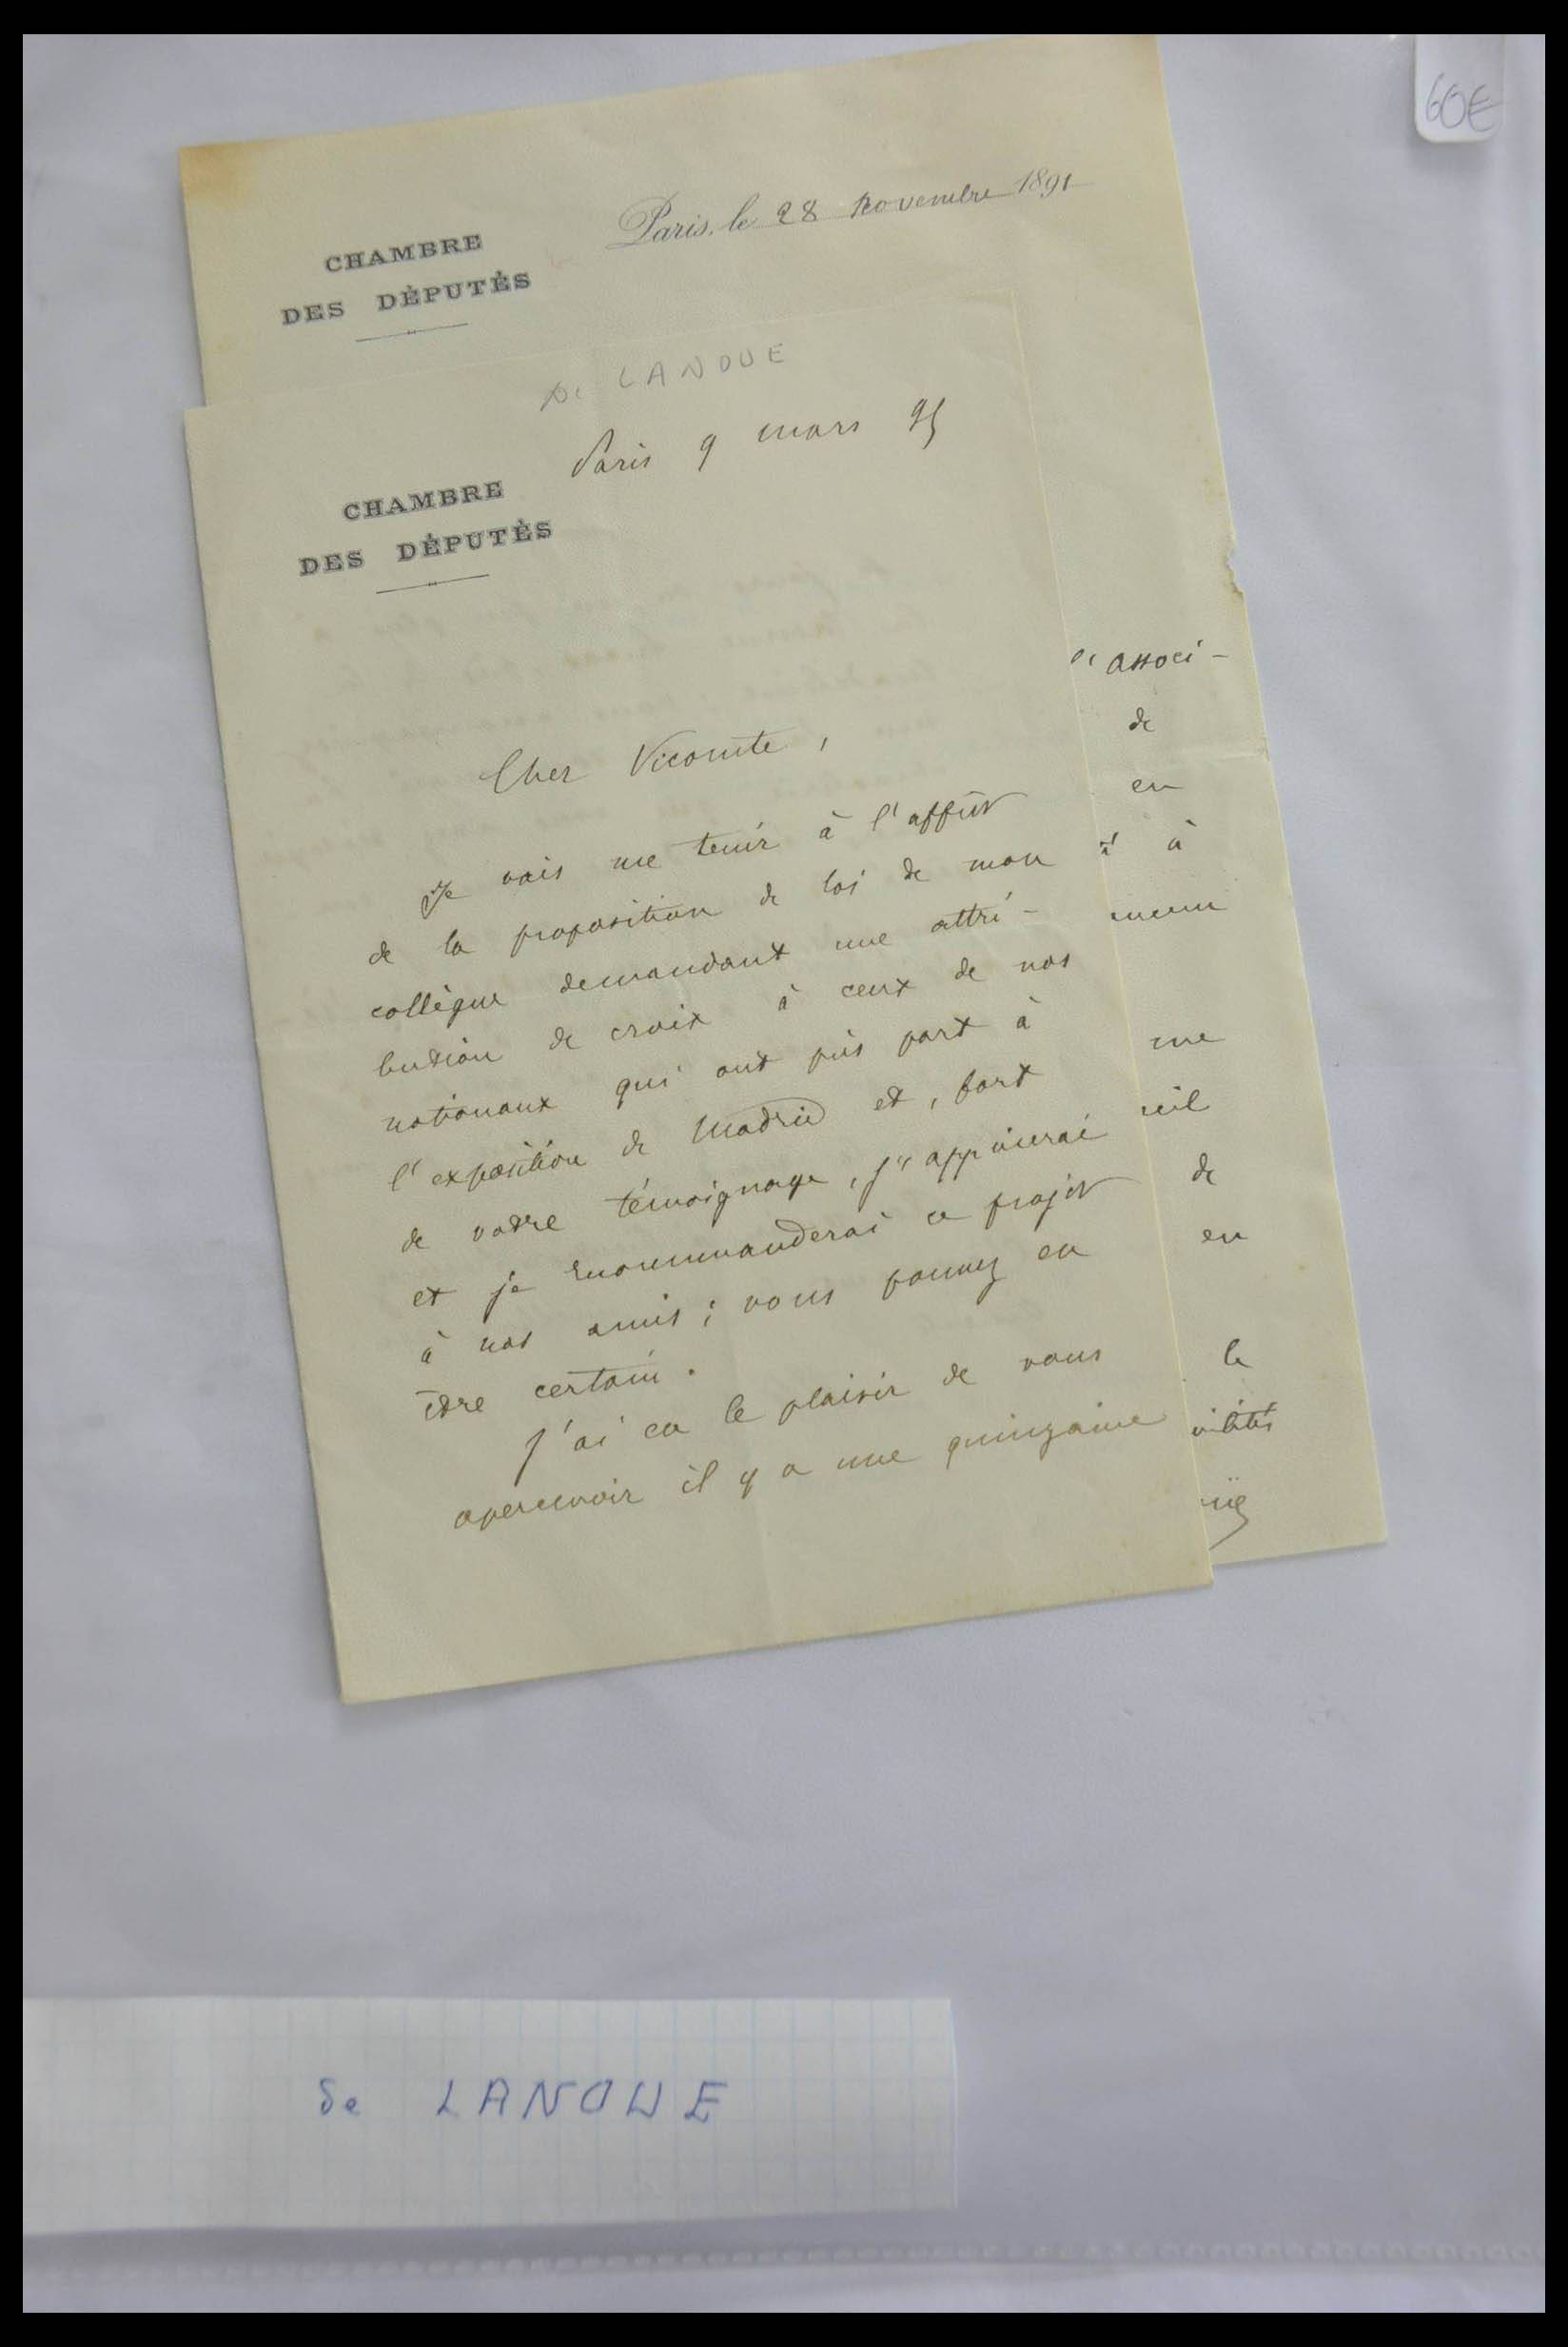 60€
CHAMBRE
DES DÉPUTÉS
Paris, le 28 Novembre 1891
De LANOUE
Paris 9 mars 95
CHAMBRE
DES DÉPUTÉS
Cher Vicomte,
Je vais me tenir à l'affût
de la proposition de loi de mon
collègue demandant une attri-
bution de croix à ceux de nos
nationaux qui ont pris part à
l'exposition de Madrid et, fort
de votre témoignage, j'appuierai
et je recommanderai ce projet
à nos amis; vous pouvez en
être certain.
J'ai eu le plaisir de vous
apercevoir il y a une quinzaine
associ-
de
en
à
me
de
en
le
de LANOUE